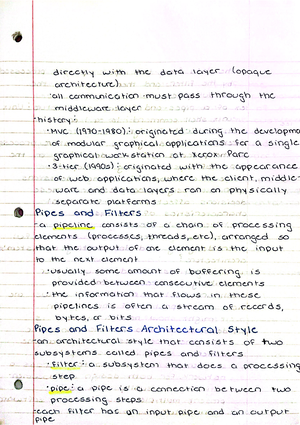 directly with the data layer (opaque
architecture)
·all communication must pass through the
middleware layer
·history:
·MVC (1970-1980): originated during the developme
of modular graphical applications for a single
graphical workstation at Xerox Parc
·3-tier (1990s): originated with the appearance
of web applications, where the client, middle-
ware and data layers ran on physically
separate platforms
Pipes and Filters
·a pipeline consists of a chain of processing
elements (processes, threads, etc), arranged so
that the output of one element is the input
to the next element
·usually some amount of buffering is
provided between consecutive elements
·the information that flows in these
pipelines is often a stream of records,
bytes, or bits
Pipes and Filters Architectural Style
·an architectural style that consists of two
subsystems called pipes and filters
·filter: a subsystem that does a processing
step
·pipe: a pipe is a connection between two
processing steps
·each filter has an input pipe and an output
pipe